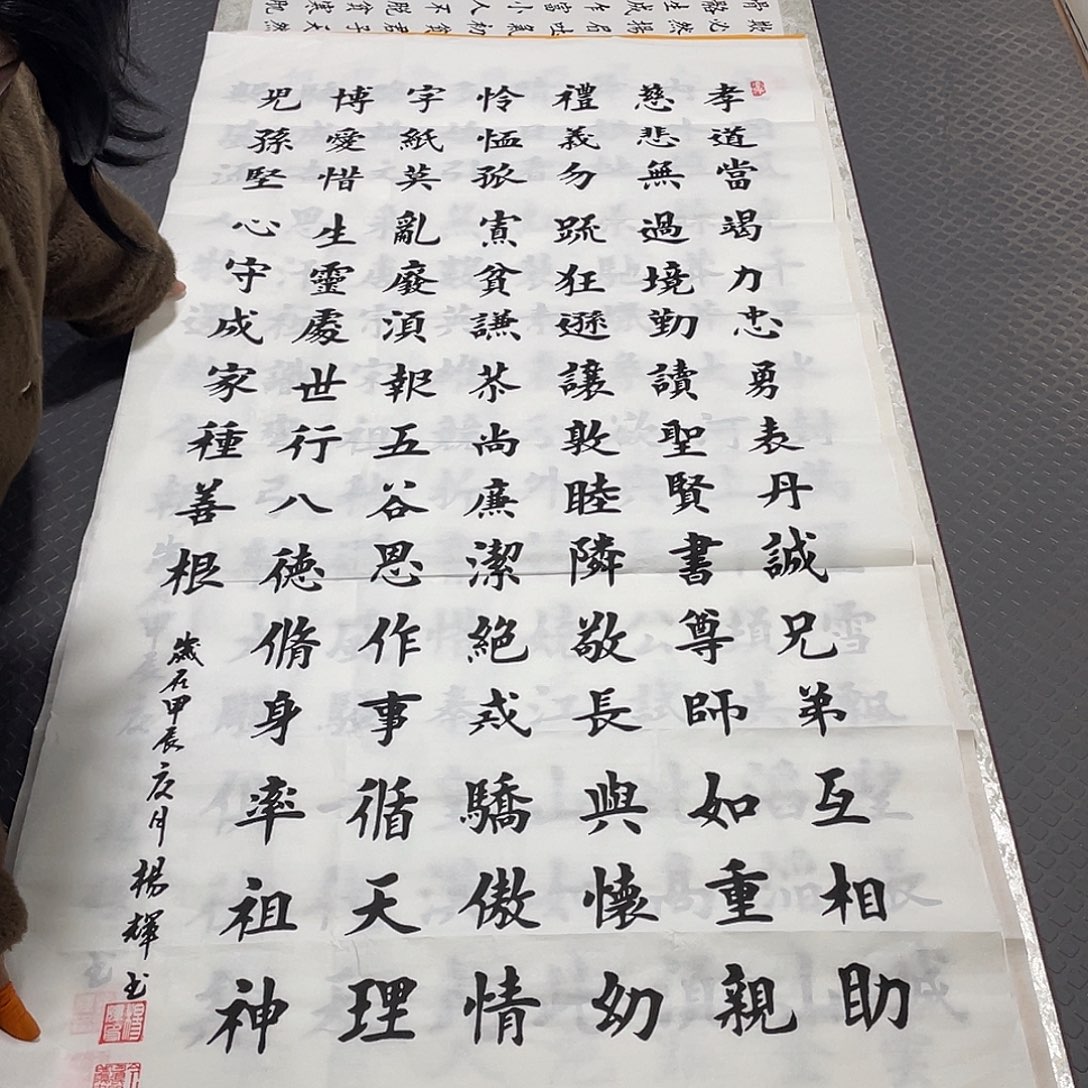 孝道當竭力忠勇表丹誠兄弟互相助
慈悲無過境勤讀聖賢書尊師如重親
禮義勿疏狂遜讓敦睦隣敬長與懷幼
怜恤孤寡貧謙恭尚廉潔絕戒驕傲情
字紙莫亂廢須報五谷恩作事循天理
博愛惜生靈處世行八德脩身率祖神
児孫堅心守成家種善根
歲在甲辰月楊輝书